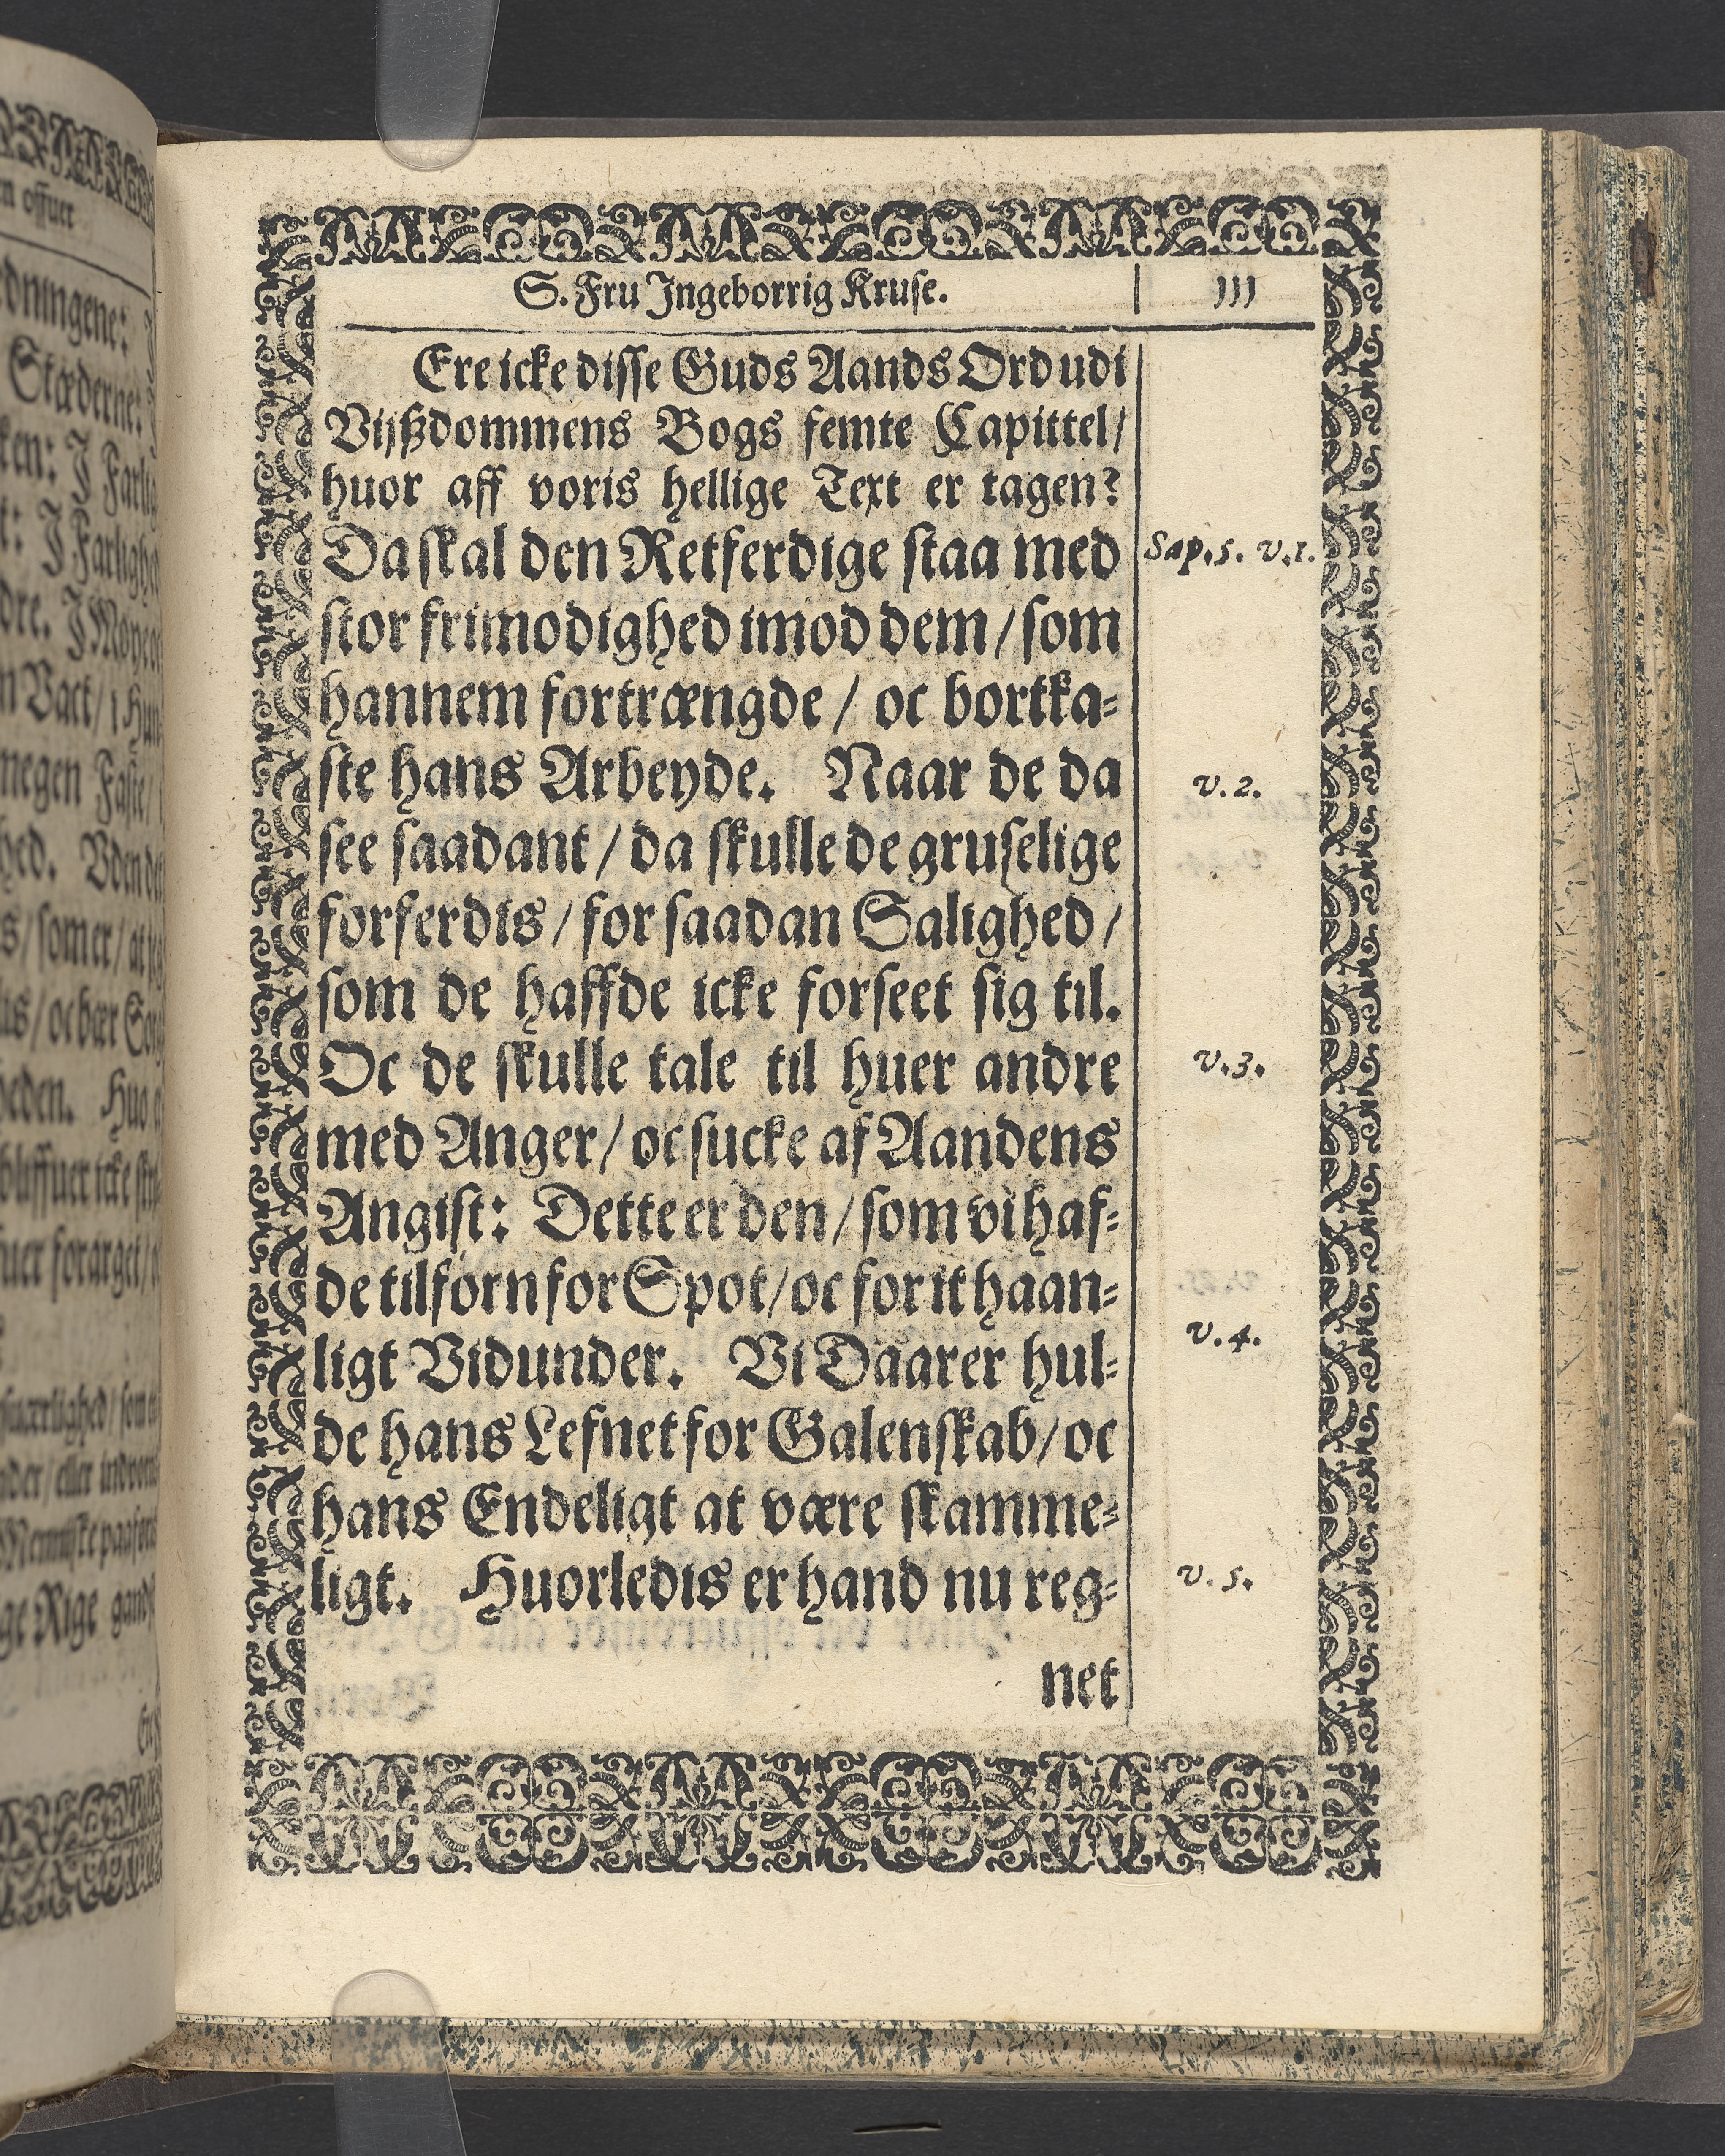 S. Fru Ingeborrig Kruse. 111
Ere icke disse Guds Aands Ord udi
Vijßdommens Bogs femte Capittel/
huor aff voris hellige Text er tagen?
Da skal den Retferdige staa med
Sap. 5. v. 1.
stor frimodighed imod dem/ som
hannem fortrængde / oc bortka-
ste hans Arbeyde. Naar de da
v. 2.
see saadant / da skulle de gruselige
forferdis / for saadan Salighed /
som de haffde icke forseet sig til.
Oc de skulle tale til huer andre
v. 3.
med Anger/ oc sucke af Aandens
Angist: Dette er den/ som vi haf-
de tilforn for Spot/ oc for it haan-
ligt Vidunder. Vi Daarer hul-
v. 4.
de hans Lefnet for Galenskab/ oc
hans Endeligt at være skamme-
ligt. Huorledis er hand nu reg-
v. 5.
net